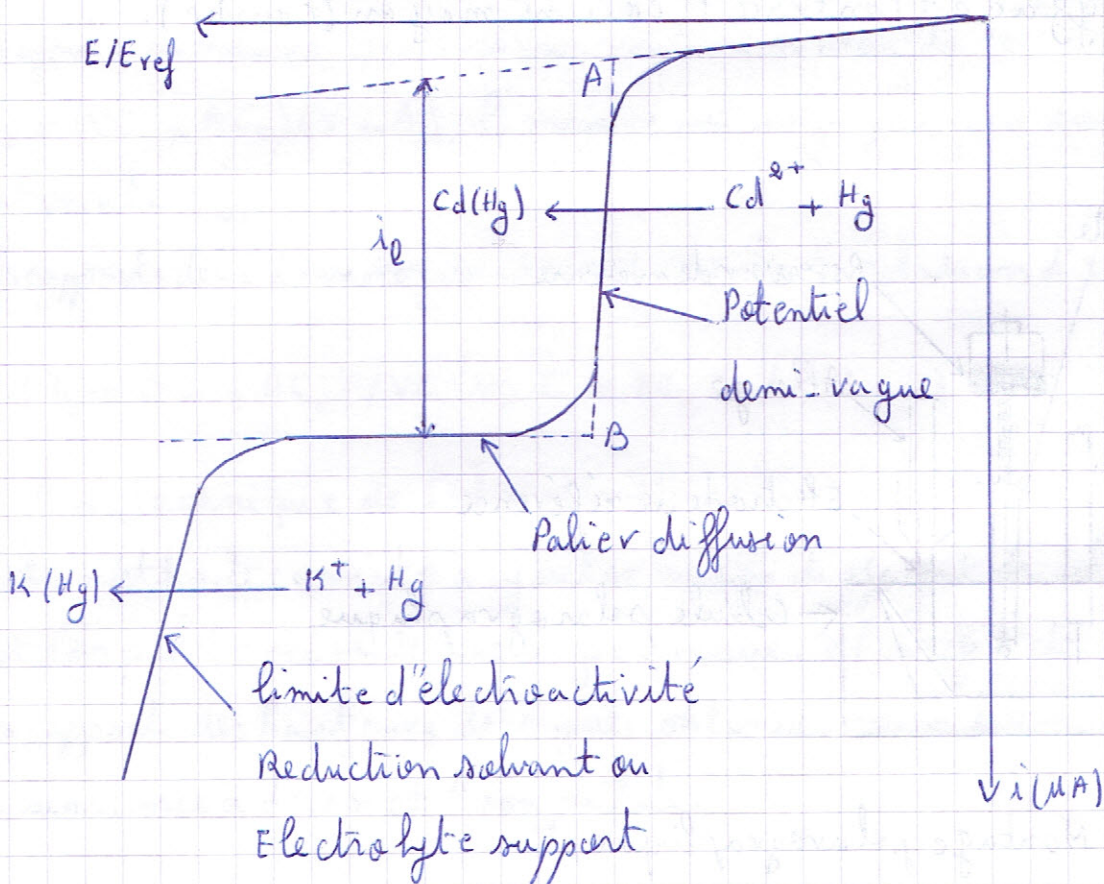 E/Eref
A
Cd(Hg)
Cd²⁺ + Hg
iℓ
Potentiel
demi-vague
B
Palier diffusion
K(Hg)
K⁺ + Hg
limite d'électroactivité
Reduction solvant ou
Electrolyte support
i(μA)